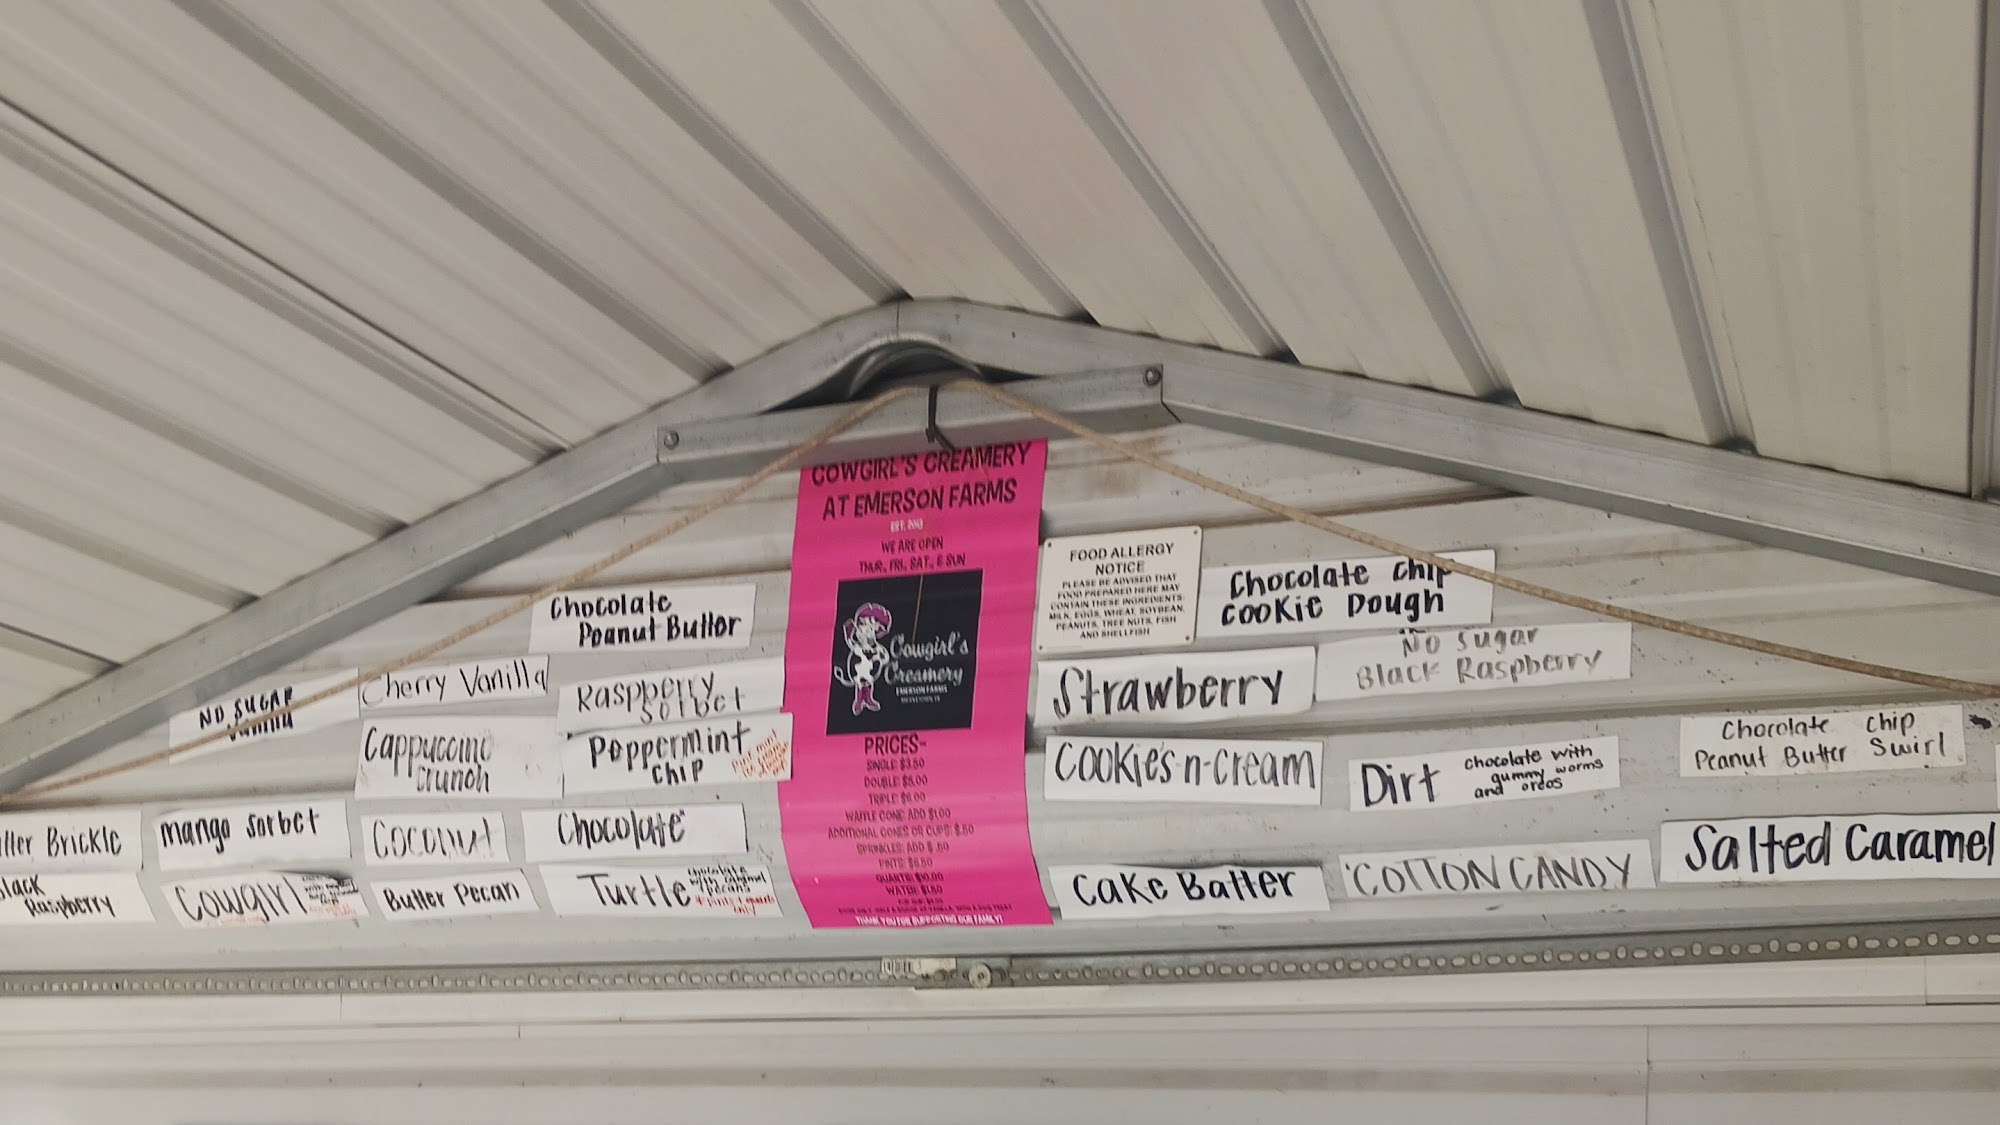 Chocolate
Peanut Butter
NO SUGAR
Vanilla
Cherry Vanilla
Raspberry
Sorbet
Cappuccino
Crunch
Peppermint
Chip
Brickle
mango sorbet
Coconut
Chocolate
Black
Raspberry
Cowgirl
Butter Pecan
Turtle
chocolate
with caramel
pecans
only
COWGIRL'S CREAMERY
AT EMERSON FARMS
EST. 2013
WE ARE OPEN
THUR., FRI., SAT., & SUN
Cowgirl's
Creamery
EMERSON FARMS
PRICES-
SINGLE $3.50
DOUBLE $5.00
TRIPLE $6.00
WAFFLE CONE: ADD $1.00
ADDITIONAL CONES OR CUPS: $.50
SPRINKLES: ADD $.50
PINTS: $6.50
QUARTS: $10.00
WATER: $1.50
THANK YOU FOR SUPPORTING OUR FAMILY!
FOOD ALLERGY
NOTICE
PLEASE BE ADVISED THAT
FOOD PREPARED HERE MAY
CONTAIN THESE INGREDIENTS:
MILK, EGGS, WHEAT, SOYBEAN,
PEANUTS, TREE NUTS, FISH
AND SHELLFISH
Chocolate chip
Cookie Dough
Strawberry
No Sugar
Black Raspberry
Cookies-n-Cream
Dirt
chocolate with
gummy worms
and oreos
Chocolate Chip
Peanut Butter Swirl
Cake Batter
COTTON CANDY
Salted Caramel